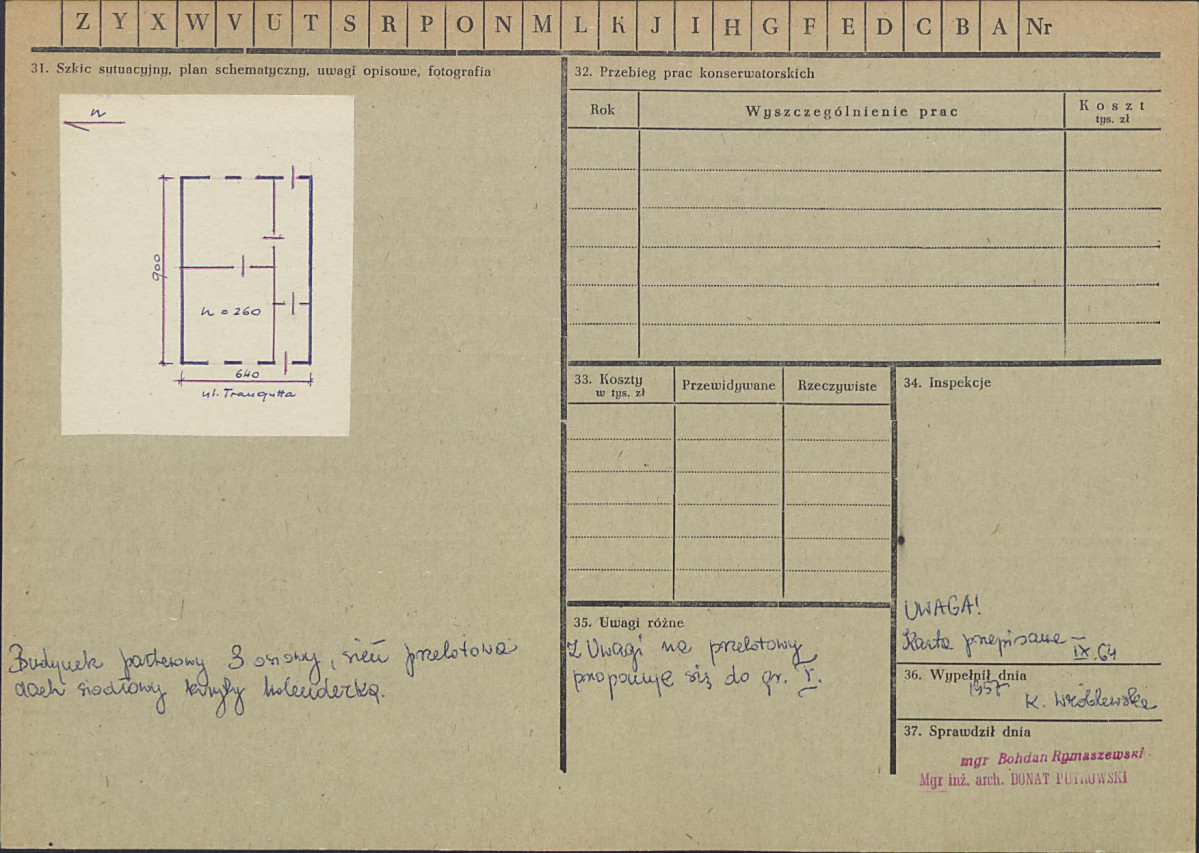 Z Y X W V U T S R P O N M L K J I H G F E D C B A Nr
31. Szkic sytuacyjny, plan schematyczny, uwagi opisowe, fotografia
n
900
h = 260
640
ul. Traugutta
Budynek parterowy 3 osiowy, sień przelotowa
dach siodłowy kryty holenderką.
32. Przebieg prac konserwatorskich
Rok Wyszczególnienie prac Koszt
tys. zł
33. Koszty Przewidywane Rzeczywiste
w tys. zł
34. Inspekcje
UWAGA!
Karta przepisana –
IX.64
35. Uwagi różne
Z Uwagi na przelotowy
proponuje się do gr. I.
36. Wypełnił dnia
1957
K. Wróblewska
37. Sprawdził dnia
mgr Bohdan Rymaszewski
Mgr inż. arch. DONAT PUTKOWSKI